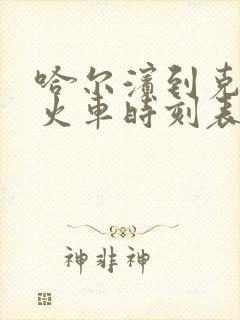 哈尔滨到克
火車時刻表
神非神